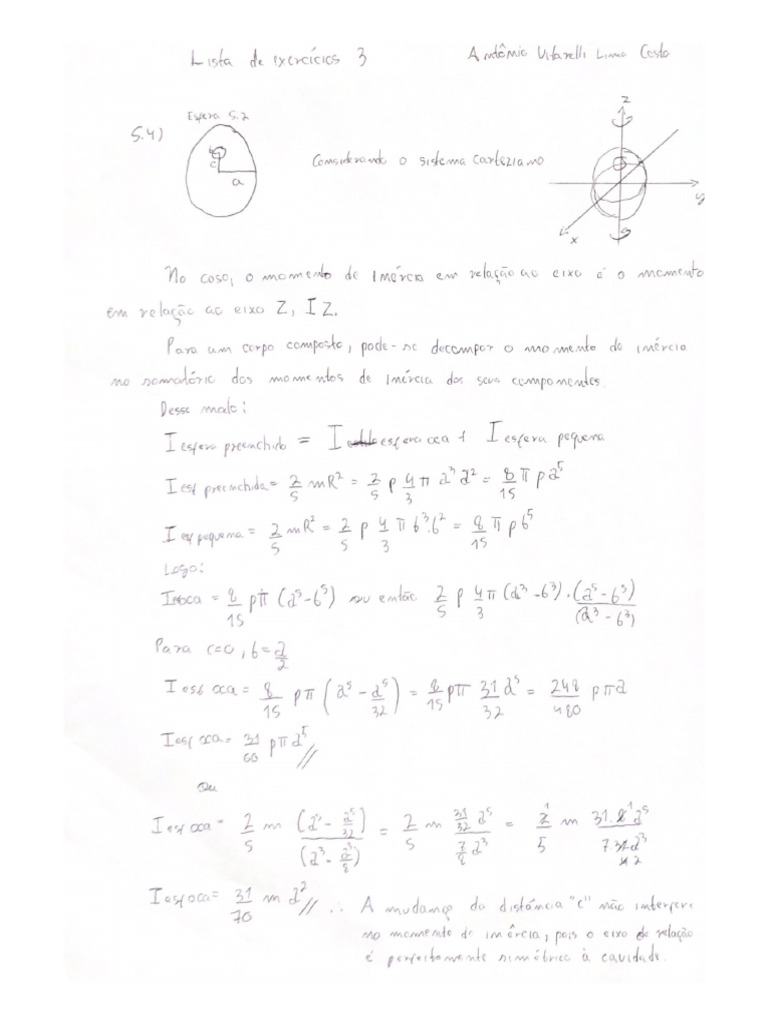 Lista de exercícios 3 Antônio Vitarelli Lima Costa
5.4) Esfera 5.2
b
c
a
Considerando o sistema carteziano
z
y
x
No caso, o momento de inércia em relação ao eixo é o momento
em relação ao eixo Z, IZ.
Para um corpo composto, pode-se decompor o momento de inércia
no somatório dos momentos de inércia dos seus componentes.
Desse modo:
I esfera preenchida = I esfera oca + I esfera pequena
I esf preenchida = 2/5 mR² = 2/5 ρ 4/3 π a³ a² = 8/15 π ρ a⁵
I esf pequena = 2/5 mR² = 2/5 ρ 4/3 π b³.b² = 8/15 π ρ b⁵
Logo:
I oca = 8/15 ρπ (a⁵-b⁵) ou então 2/5 ρ 4/3 π (a³-b³) . (a⁵-b⁵)/(a³-b³)
Para c=0, b=a/2
I esf oca = 8/15 ρπ (a⁵ - a⁵/32) = 8/15 ρπ 31/32 a⁵ = 248/480 ρπa
I esf oca = 31/60 ρπa⁵ //
Ou
I esf oca = 2/5 m (a⁵ - a⁵/32)/(a³ - a³/8) = 2/5 m (31/32 a⁵)/(7/8 a³) = 2/5 m 31.8 a⁵/7.32 a³
I esf oca = 31/70 m a² // ∴ A mudança da distância "c" não interfere
no momento de inércia, pois o eixo de relação
é perfeitamente simétrico à cavidade.